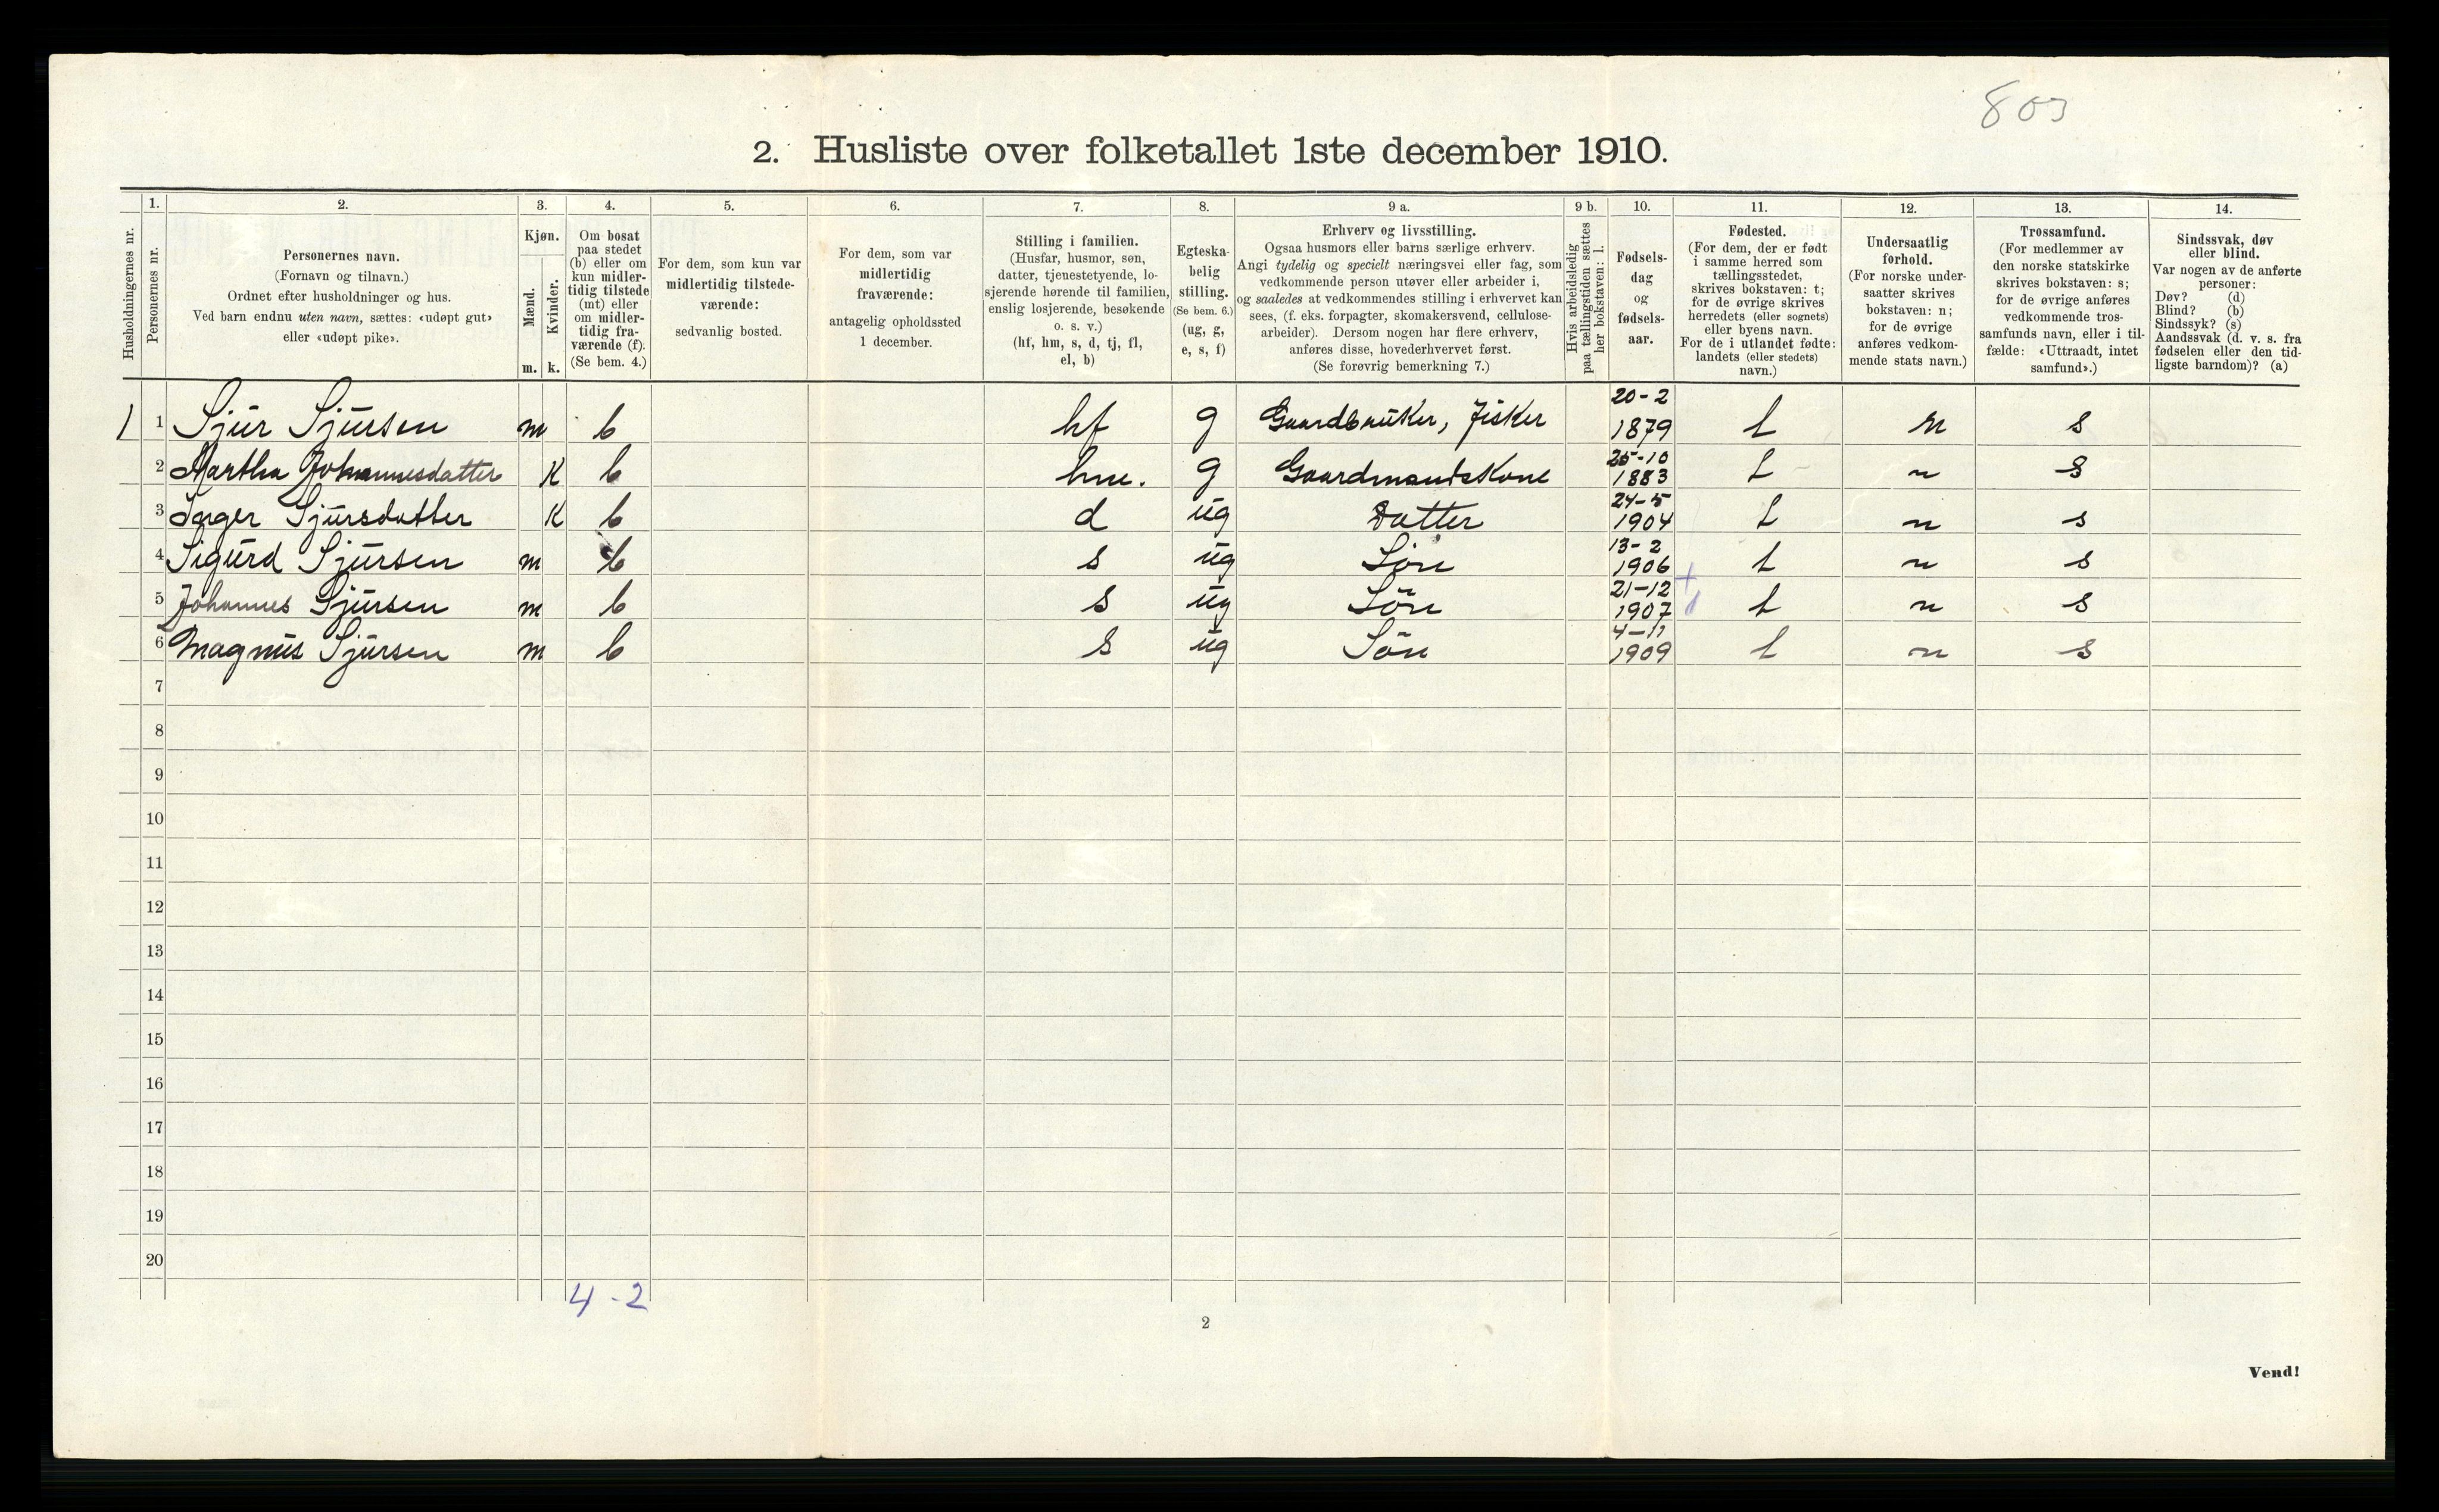 803
2. Husliste over folketallet 1ste december 1910.
Husholdningernes nr.
1.
Personernes nr.
2.
Personernes navn.
(Fornavn og tilnavn.)
Ordnet efter husholdninger og hus.
Ved barn endnu uten navn, sættes: «udøpt gut»
eller «udøpt pike».
3.
Kjøn.
Mænd.
Kvinder.
m. k.
4.
Om bosat
paa stedet
(b) eller om
kun midler-
tidig tilstede
(mt) eller
om midler-
tidig fra-
værende (f).
(Se bem. 4.)
5.
For dem, som kun var
midlertidig tilstede-
værende:
sedvanlig bosted.
6.
For dem, som var
midlertidig
fraværende:
antagelig opholdssted
1 december.
7.
Stilling i familien.
(Husfar, husmor, søn,
datter, tjenestetyende, lo-
sjerende hørende til familien,
enslig losjerende, besøkende
o. s. v.)
(hf, hm, s, d, tj, fl,
el, b)
8.
Egteska-
belig
stilling.
(Se bem. 6.)
(ug, g,
e, s, f)
9 a.
Erhverv og livsstilling.
Ogsaa husmors eller barns særlige erhverv.
Angi tydelig og specielt næringsvei eller fag, som
vedkommende person utøver eller arbeider i,
og saaledes at vedkommendes stilling i erhvervet kan
sees, (f. eks. forpagter, skomakersvend, cellulose-
arbeider). Dersom nogen har flere erhverv,
anføres disse, hovederhvervet først.
(Se forøvrig bemerkning 7.)
9 b.
Hvis arbeidsledig
paa tællingstiden sættes
her bokstaven: l.
10.
Fødsels-
dag
og
fødsels-
aar.
11.
Fødested.
(For dem, der er født
i samme herred som
tællingsstedet,
skrives bokstaven: t;
for de øvrige skrives
herredets (eller sognets)
eller byens navn.
For de i utlandet fødte:
landets (eller stedets)
navn.)
12.
Undersaatlig
forhold.
(For norske under-
saatter skrives
bokstaven: n;
for de øvrige
anføres vedkom-
mende stats navn.)
13.
Trossamfund.
(For medlemmer av
den norske statskirke
skrives bokstaven: s;
for de øvrige anføres
vedkommende tros-
samfunds navn, eller i til-
fælde: «Uttraadt, intet
samfund».)
14.
Sindssvak, døv
eller blind.
Var nogen av de anførte
personer:
Døv? (d)
Blind? (b)
Sindssyk? (s)
Aandssvak (d. v. s. fra
fødselen eller den tid-
ligste barndom)? (a)
1 1 Sjur Sjursen m b hf g Gaardbruker, Fisker 20-2 1879 t n s
2 Martha Johannesdatter K b hm. g Gaardmandskone 25-10 1883 t n s
3 Inger Sjursdatter K b d ug Datter 24-5 1904 t n s
4 Sigurd Sjursen m b s ug Søn 13-2 1906 t n s
5 Johannes Sjursen m b s ug Søn 21-12 1907 t n s
6 Magnus Sjursen m b s ug Søn 4-11 1909 t n s
7
8
9
10
11
12
13
14
15
16
17
18
19
20
4-2
2
Vend!